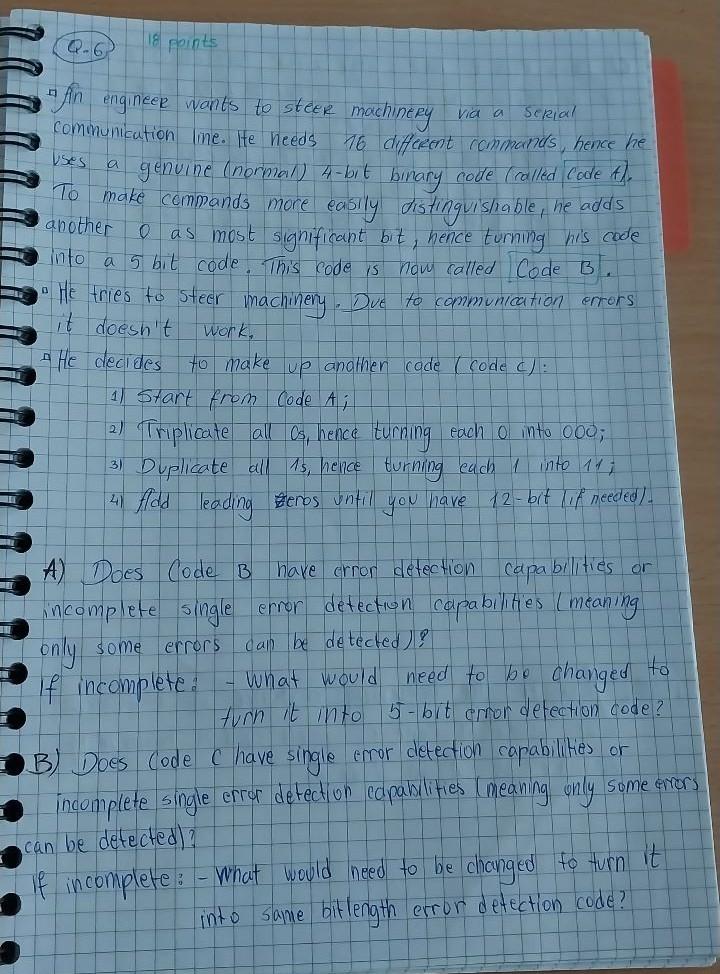 Q.6 18 points
An engineer wants to steer machinery via a serial
communication line. He needs 16 different commands, hence he
uses a genuine (normal) 4-bit binary code (called Code A).
To make commands more easily distinguishable, he adds
another 0 as most significant bit, hence turning his code
into a 5 bit code. This code is now called Code B.
He tries to steer machinery. Due to communication errors
it doesn't work.
He decides to make up another code (code C):
1) Start from Code A;
2) Triplicate all 0s, hence turning each 0 into 000;
3) Duplicate all 1s, hence turning each 1 into 11;
4) Add leading zeros until you have 12-bit (if needed).
A) Does Code B have error detection capabilities or
incomplete single error detection capabilities (meaning
only some errors can be detected)?
If incomplete: - What would need to be changed to
turn it into 5-bit error detection code?
B) Does Code C have single error detection capabilities or
incomplete single error detection capabilities (meaning only some errors
can be detected)?
If incomplete: - What would need to be changed to turn it
into same bitlength error detection code?